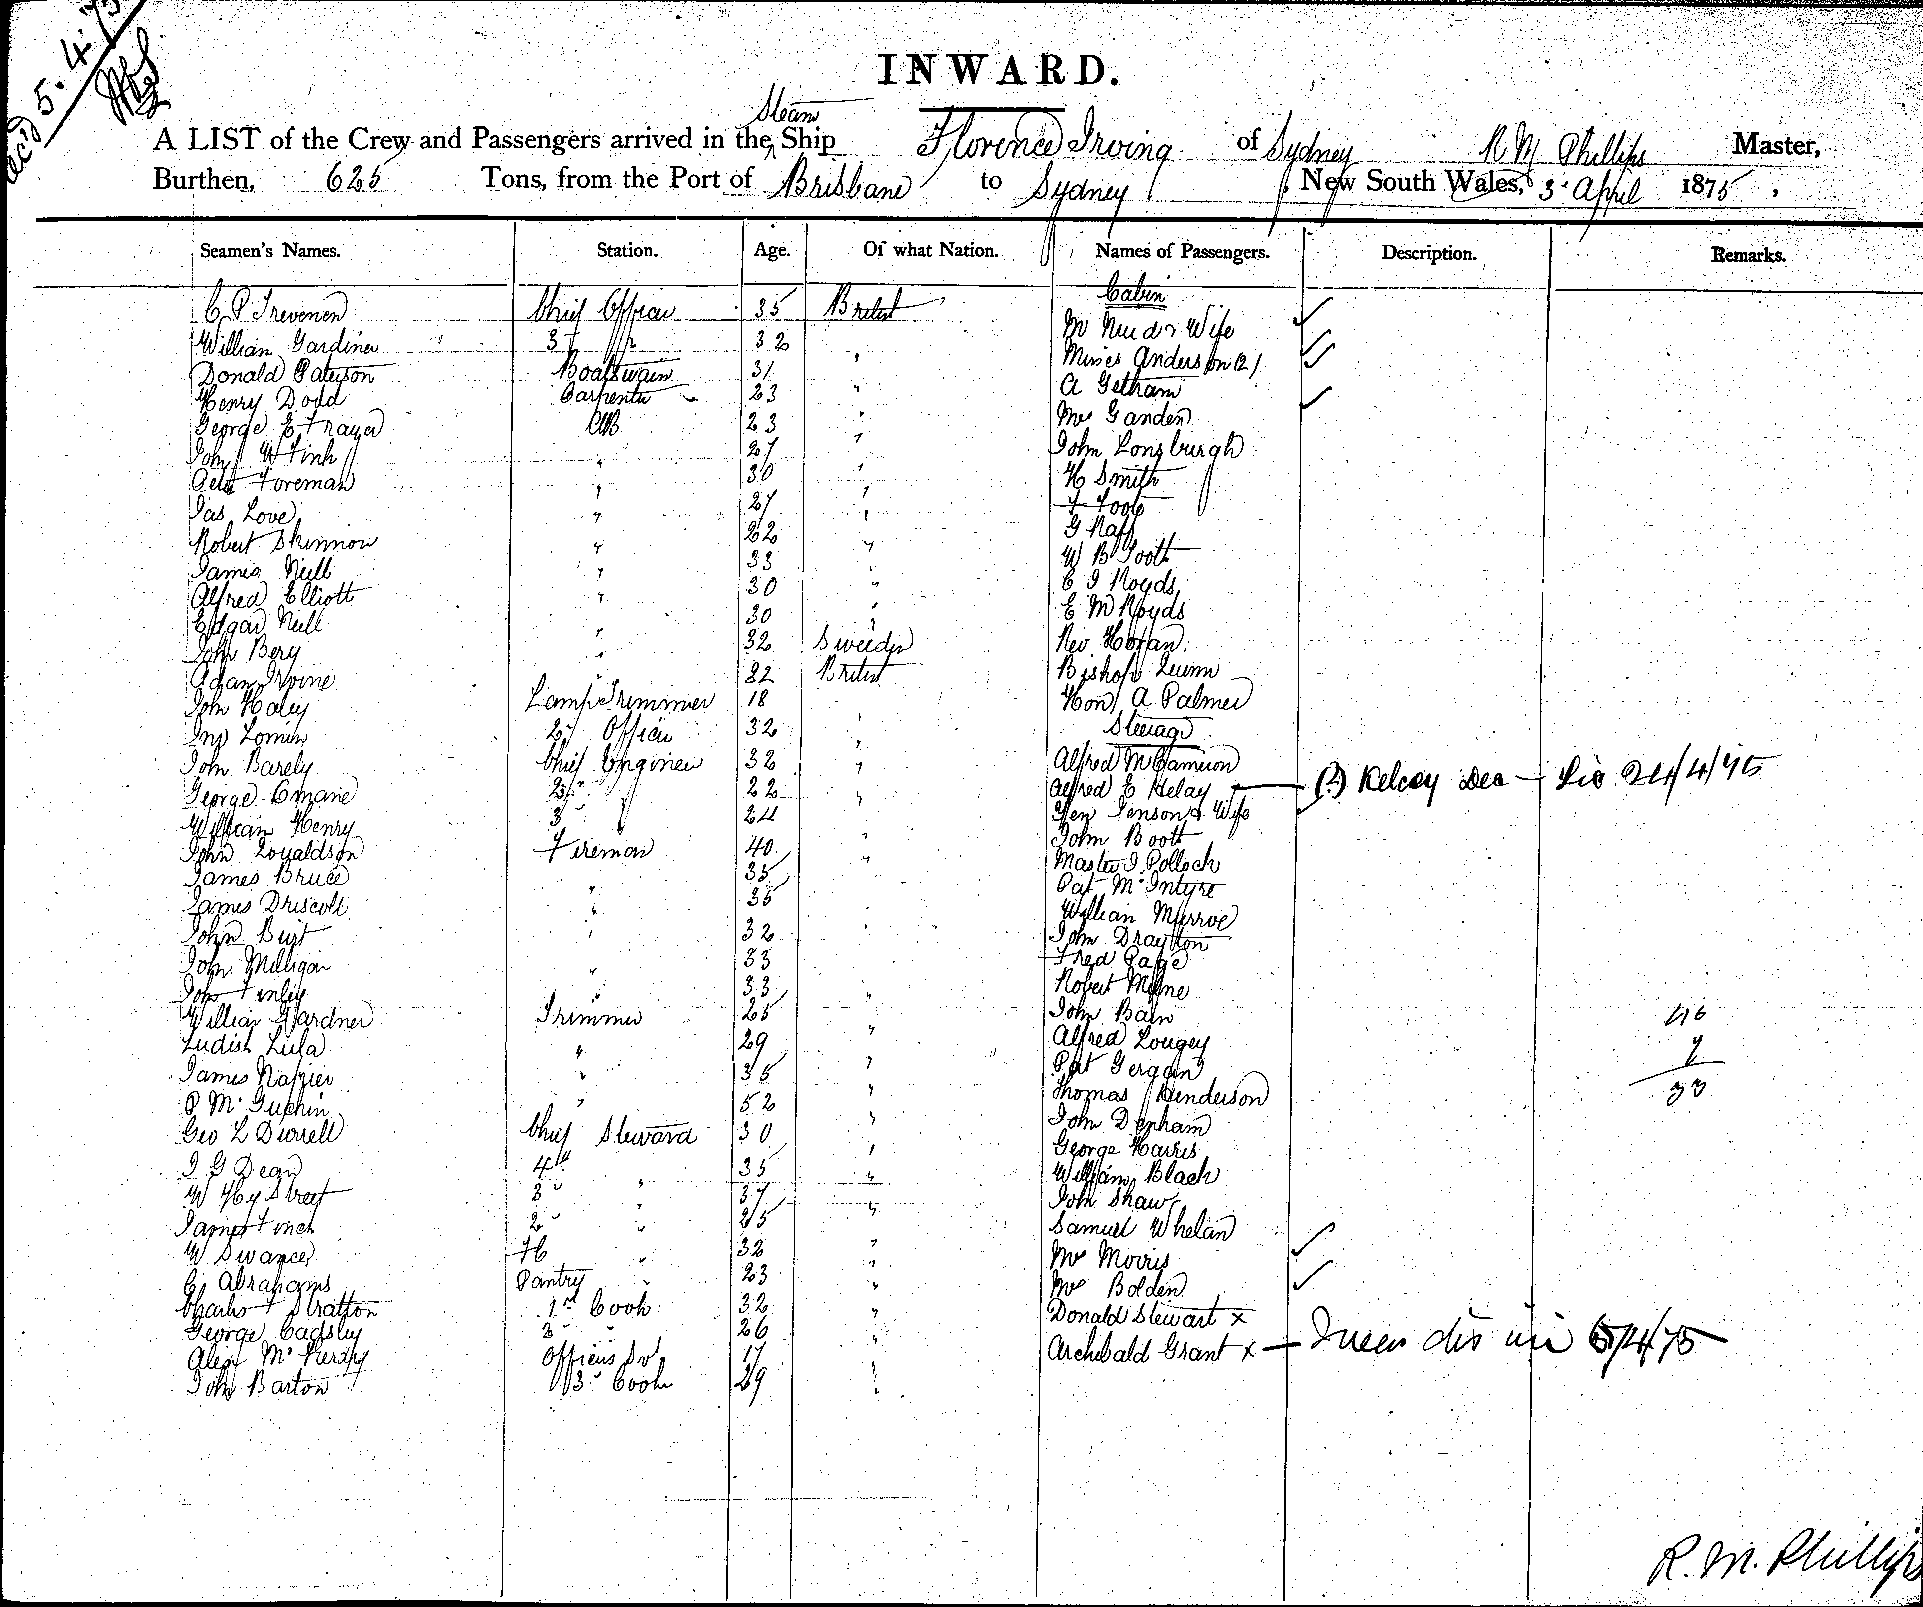 Rec'd 5.4.75
INWARD.
Steam
A LIST of the Crew and Passengers arrived in the Ship Florence Irving of Sydney R M Phillips Master,
Burthen, 625 Tons, from the Port of Brisbane to Sydney, New South Wales, 3 April 1875,
Seamen's Names. Station. Age. Of what Nation. Names of Passengers. Description. Remarks.
Cabin
C P Trevenen Chief Officer 35 British
M & Wife
William Gardiner 3 " 32 "
Misses Anderson (2)
Donald Paterson Boatswain 31 "
A Getham
Henry Dodd Carpenter 23 "
Mrs Ganden
George E Frayer AB 23 "
John Longburgh
John W Fink " 27 "
H Smith
Foreman " 30 "
F Foot
Jas Love " 27 "
G Raff
Robert Shinnon " 22 "
W B Tooth
James Neill " 33 "
C J Royds
Alfred Elliott " 30 "
E M Royds
Edgar Neill " 30 "
Rev Horan
John Berg " 32 Sweeden
Bishop Quinn
Adam Irvine " 22 British
Hon A Palmer
John Haley Lamp Trimmer 18 "
Steerage
Jno 2nd Officer 32 "
Alfred McCameron
John Barely Chief Engineer 32 "
Alfred E Helay — (?) Kelcey Dea — Lio 24/4/75
George 2nd " 22 "
Hen Jenson & Wife
William Henry 3 " 24 "
John Booth
John Donaldson Fireman 40 "
Master J. Pollock
James Bruce " 35
Pat McIntyre
James Driscoll " 35
William Munroe
John Burt " 32
John Drayton
John Milligan " 33
Fred Page
John Finley " 33 "
Robert Milne
William Gardner Trimmer 25 "
John Bain
46
Ludish Lula " 29 "
Alfred Lougey
7
James Napier " 35 "
Pat Gergan
33
P McGuchin " 52 "
Thomas Henderson
Geo L Durrell Chief Steward 30 "
John Denham
George Harris
J G Dean 4th " 35 "
William Black
W Hy Street 3 " 37 "
John Shaw
James Finch 2 " 25 "
Samuel Whelan
W Swance " 32 "
Mrs Morris
C Abrahams Pantry " 23 "
Mrs Bolden
Charles F Stratton 1st Cook 32 "
Donald Stewart x
George Cadsley 2 " 26 "
Archibald Grant x — 5/4/75
Alex McKerdy Officers St 17 "
John Barton 3 Cook 29 "
R. M. Phillips